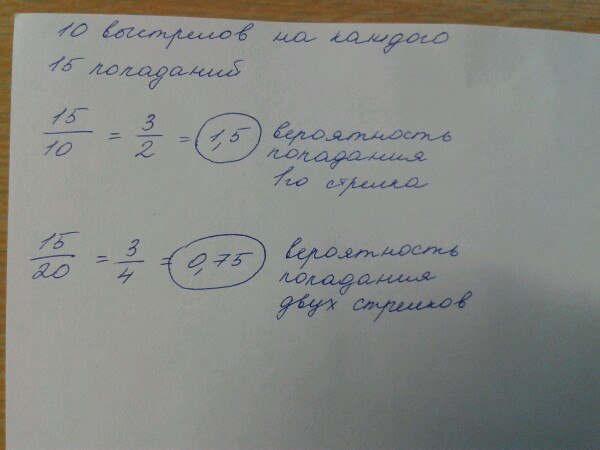 10 выстрелов на каждого
15 попаданий
15/10 = 3/2 = 1,5 вероятность
попадания
1го стрелка
15/20 = 3/4 = 0,75 вероятность
попадания
двух стрелков